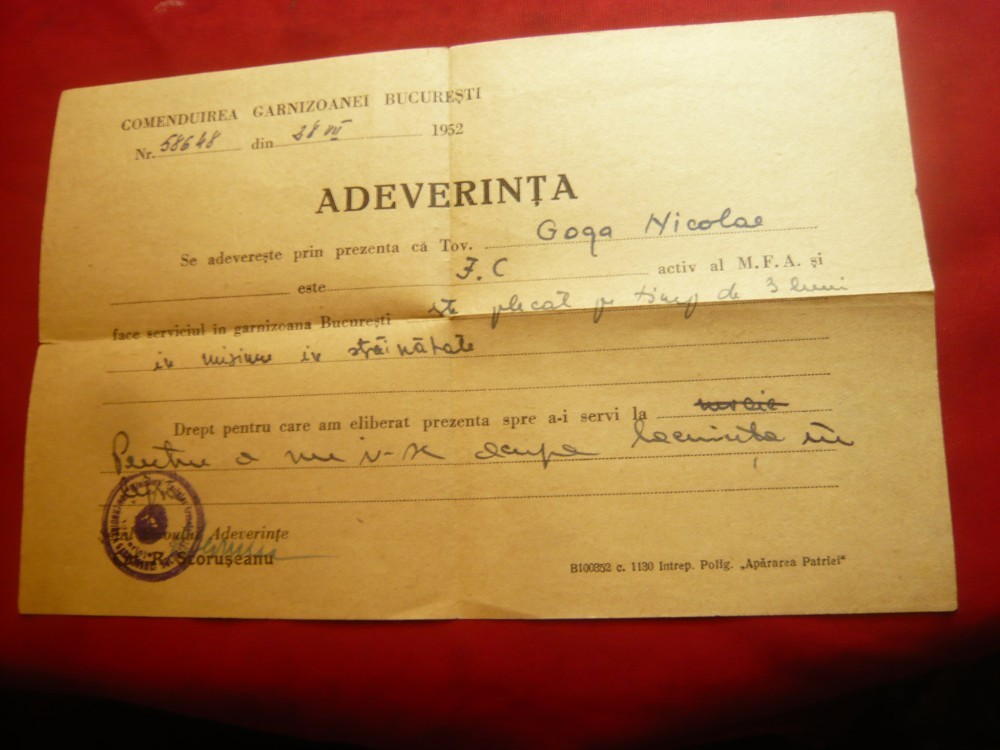 COMENDUIREA GARNIZOANEI BUCUREȘTI
Nr. 58648 din 28 VII 1952
ADEVERINȚA
Se adeverește prin prezenta că Tov. Goga Nicolae
este J.C activ al M.F.A. și
face serviciul in garnizoana București este plecat pe timp de 3 luni
in misiune in străinătate
Drept pentru care am eliberat prezenta spre a-i servi la
Pentru a nu i-se ocupa locuința
Biroului Adeverințe
R. Scorușeanu
B100352 c. 1130 Intrep. Polig. „Apărarea Patriei“